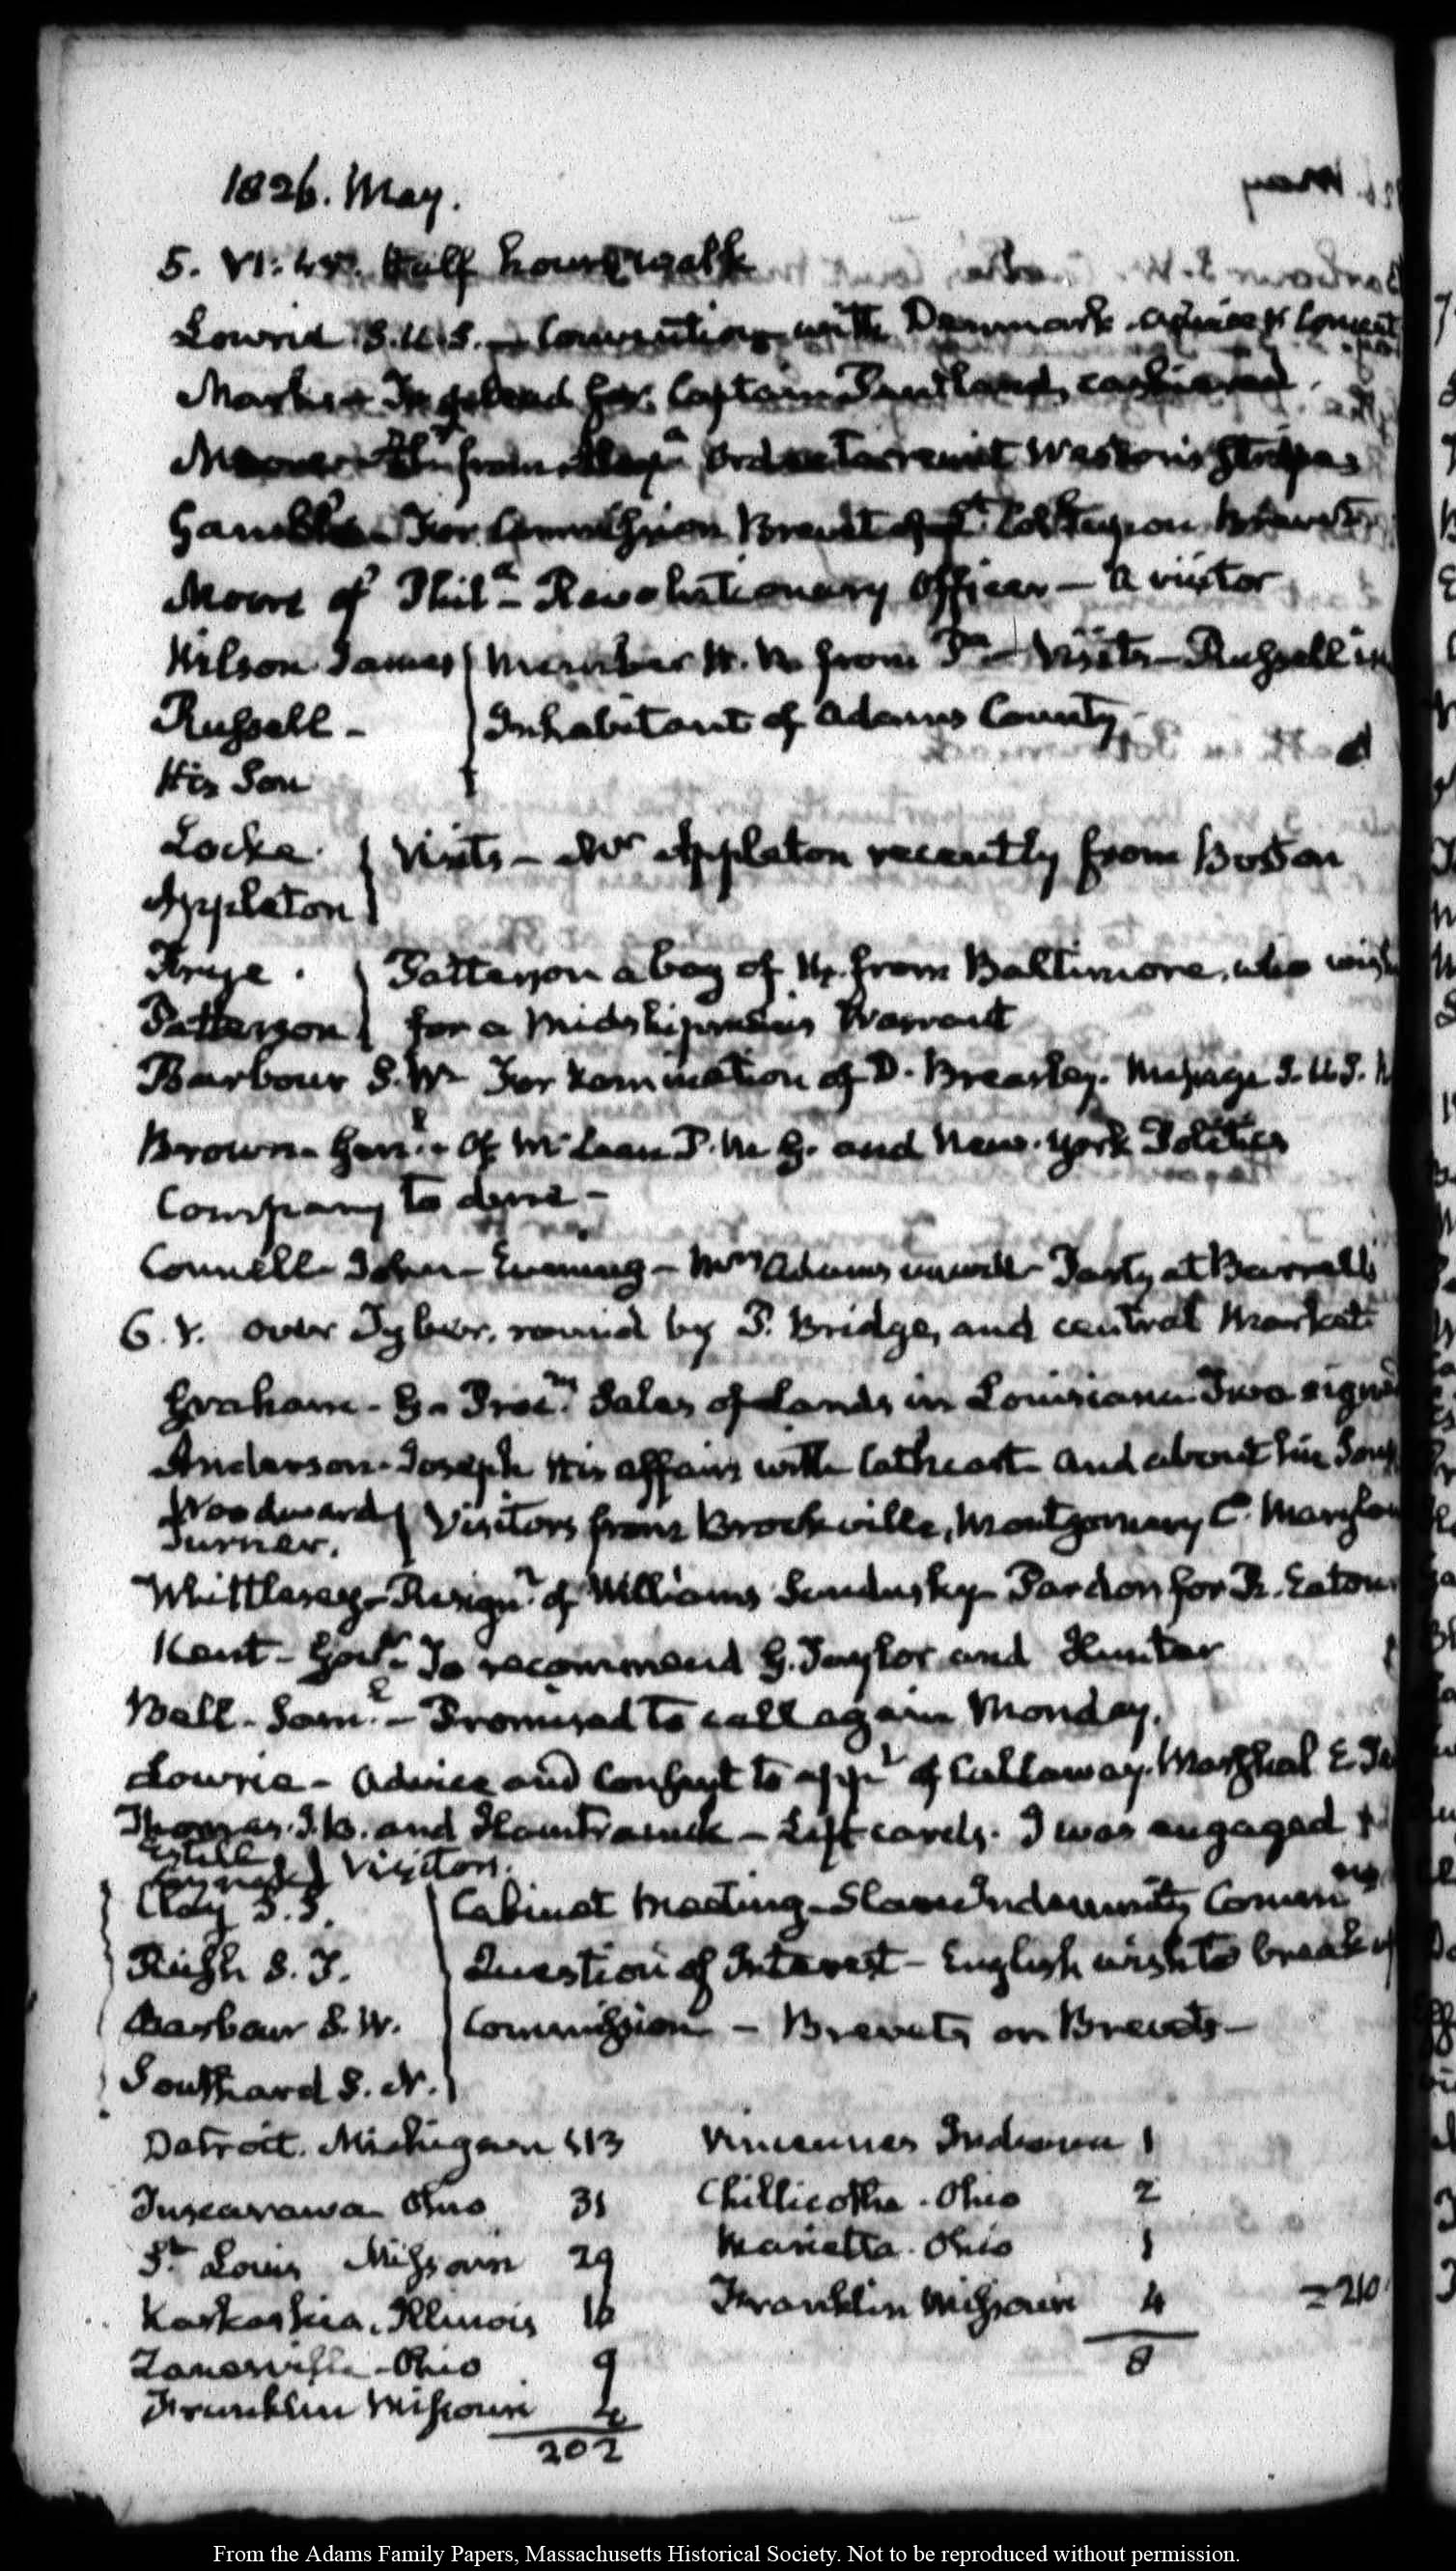 1826. May.
5. VI:45. Half hour walk
Lowrie S.U.S. — Convention with Denmark. advice & Consent
Marks — To plead for Captain Pentland, cashiered.
from order to remit Weston's stripes
Gamble — For Commission Brevet of Lt. Col. upon Brevet
Moore of Phila. — Revolutionary Officer — a visitor
Wilson James Member H.R. from Pa. — Visits — Russell in
Russell — Inhabitant of Adams County.
His Son
Locke. Visits — Mr Appleton recently from Boston
Appleton
Frye. Patterson a boy of from Baltimore, who wish
Patterson for a Midshipman's Warrant
Barbour S.W. For nomination of D. Brearley. Message S.U.S.
Brown. Genl. — Of McLean P.M.G. and New-York Politics
Company to dine —
Connell — John — Evening — Mrs Adams unwell — Party at Barrell's
6. V. over Tyber, round by P. Bridge, and central Market
Graham — G. — Procn. Sales of Lands in Louisiana. Two signed
Anderson — Joseph His affairs with Cathcart and about his Sons
Woodward Visitors from Brookville, Montgomery Cy. Maryland
Turner.
Whittlesey — Resign.n of Williams Sandusky — Pardon for R. Eaton.
Kent — Govr. — To recommend G. Taylor and Hunter
Bell — Saml. — Promised to call again Monday.
Lowrie — Advice and Consent to appt of Callaway. Marshal E.
Thomas. J.B. and Hamtramck — Left cards. I was engaged
Estill Visitors.
Clay S.S. Cabinet Meeting — Slave Indemnity Commn
Rush S.T. Question of Interest — English wish to break up
Barbour S.W. Commission — Brevets on Brevets —
Southard S.N.
Detroit. Michigan 113 Vincennes Indiana 1
Tuscarawa Ohio 31 Chillicothe. Ohio 2
St. Louis Missouri 29 Marietta. Ohio 1
Kaskaskia. Illinois 16 Franklin Missouri 4 = 210
Zanesville — Ohio 9 8
Franklin Missouri 4
202
From the Adams Family Papers, Massachusetts Historical Society. Not to be reproduced without permission.